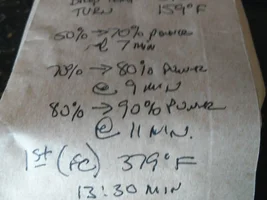 TURN 159°F
60% → 70% POWER
@ 7 MIN
70% → 80% POWER
@ 9 MIN
80% → 90% POWER
@ 11 MIN.
1st (FC) 379°F
13:30 MIN